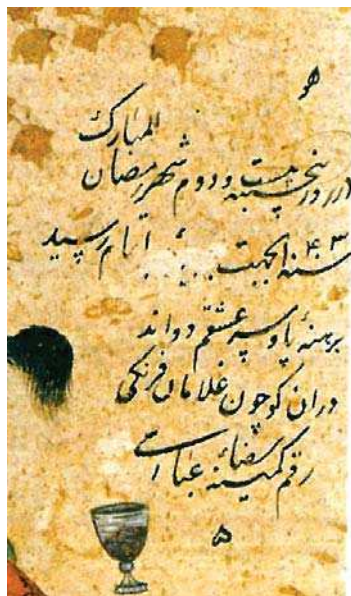 هو
المبارک
در روز پنجشنبه بیست و دوم شهر رمضان
سنه ۴۳ بجهت باتمام رسید
برهنهٔ پا و سر عشقم دواند
دران کو چون غلامان فرنکی
رقم کمینه رضاء عباسی
۵